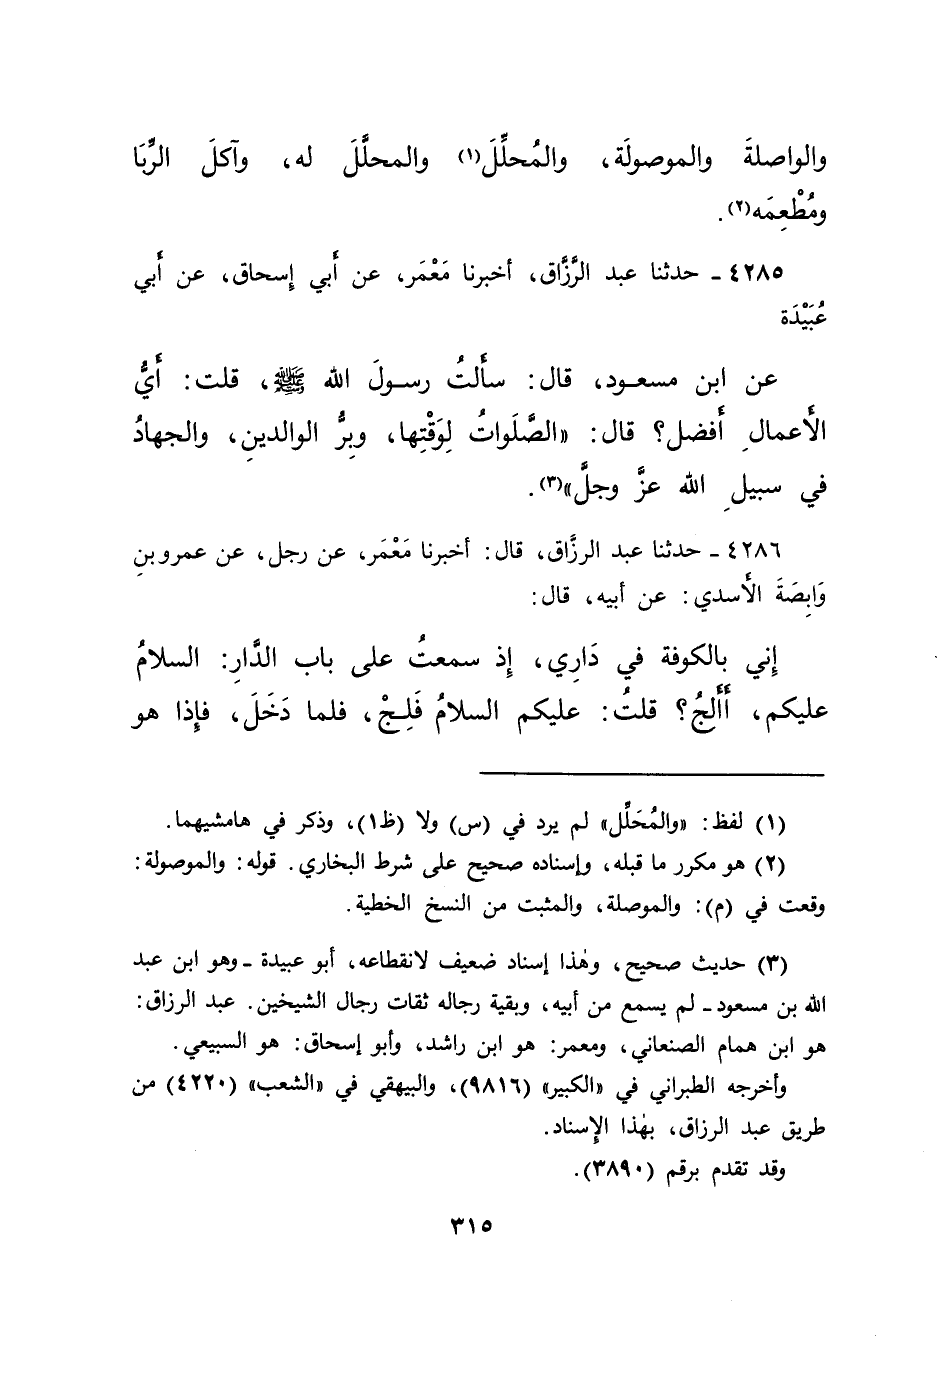 والواصلةَ والموصولَة، والمُحلِّلَ(١) والمحلَّلَ له، وآكلَ الرِّبَا
ومُطْعِمَه(٢).
٤٢٨٥ ـ حدثنا عبد الرَّزَّاق، أخبرنا مَعْمَر، عن أَبي إِسحاق، عن أَبي
عُبَيْدَة
عن ابن مسعـود، قال: سأَلتُ رسـولَ الله ﷺ، قلت: أَيُّ
الأَعمالِ أَفضل؟ قال: «الصَّلَواتُ لِوَقْتِها، وبِرُّ الوالدينِ، والجهادُ
في سبيلِ الله عزَّ وجلَّ»(٣).
٤٢٨٦ ـ حدثنا عبد الرزَّاق، قال: أخبرنا مَعْمَر، عن رجل، عن عمرو بنِ
وَابِصَةَ الأَسدي: عن أبيه، قال:
إِني بالكوفة في دَارِي، إِذ سمعتُ على باب الدَّارِ: السلامُ
عليكم، أَأَلجُ؟ قلتُ: عليكم السلامُ فَلِـجْ، فلما دَخَلَ، فإِذا هو
(١) لفظ: «والمُحَلِّل» لم يرد في (س) ولا (ظ١)، وذكر في هامشيهما.
(٢) هو مكرر ما قبله، وإسناده صحيح على شرط البخاري. قوله: والموصولة:
وقعت في (م): والموصلة، والمثبت من النسخ الخطية.
(٣) حديث صحيح، وهٰذا إسناد ضعيف لانقطاعه، أبو عبيدة ـ وهو ابن عبد
الله بن مسعود ـ لم يسمع من أبيه، وبقية رجاله ثقات رجال الشيخين. عبد الرزاق:
هو ابن همام الصنعاني، ومعمر: هو ابن راشد، وأبو إسحاق: هو السبيعي.
وأخرجه الطبراني في «الكبير» (٩٨١٦)، والبيهقي في «الشعب» (٤٢٢٠) من
طريق عبد الرزاق، بهٰذا الإسناد.
وقد تقدم برقم (٣٨٩٠).
٣١٥